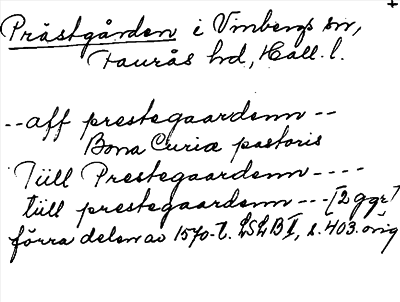 +
Prästgården i Vinbergs sn,
Faurås hd, Hall. l.
--aff prestegaardenn--
Bona Curiæ pastoris
Tiill Prestegaardenn----
tiill prestegaardenn---[2 ggr]
förra delen av 1570-t. LSLB II, s. 403. orig